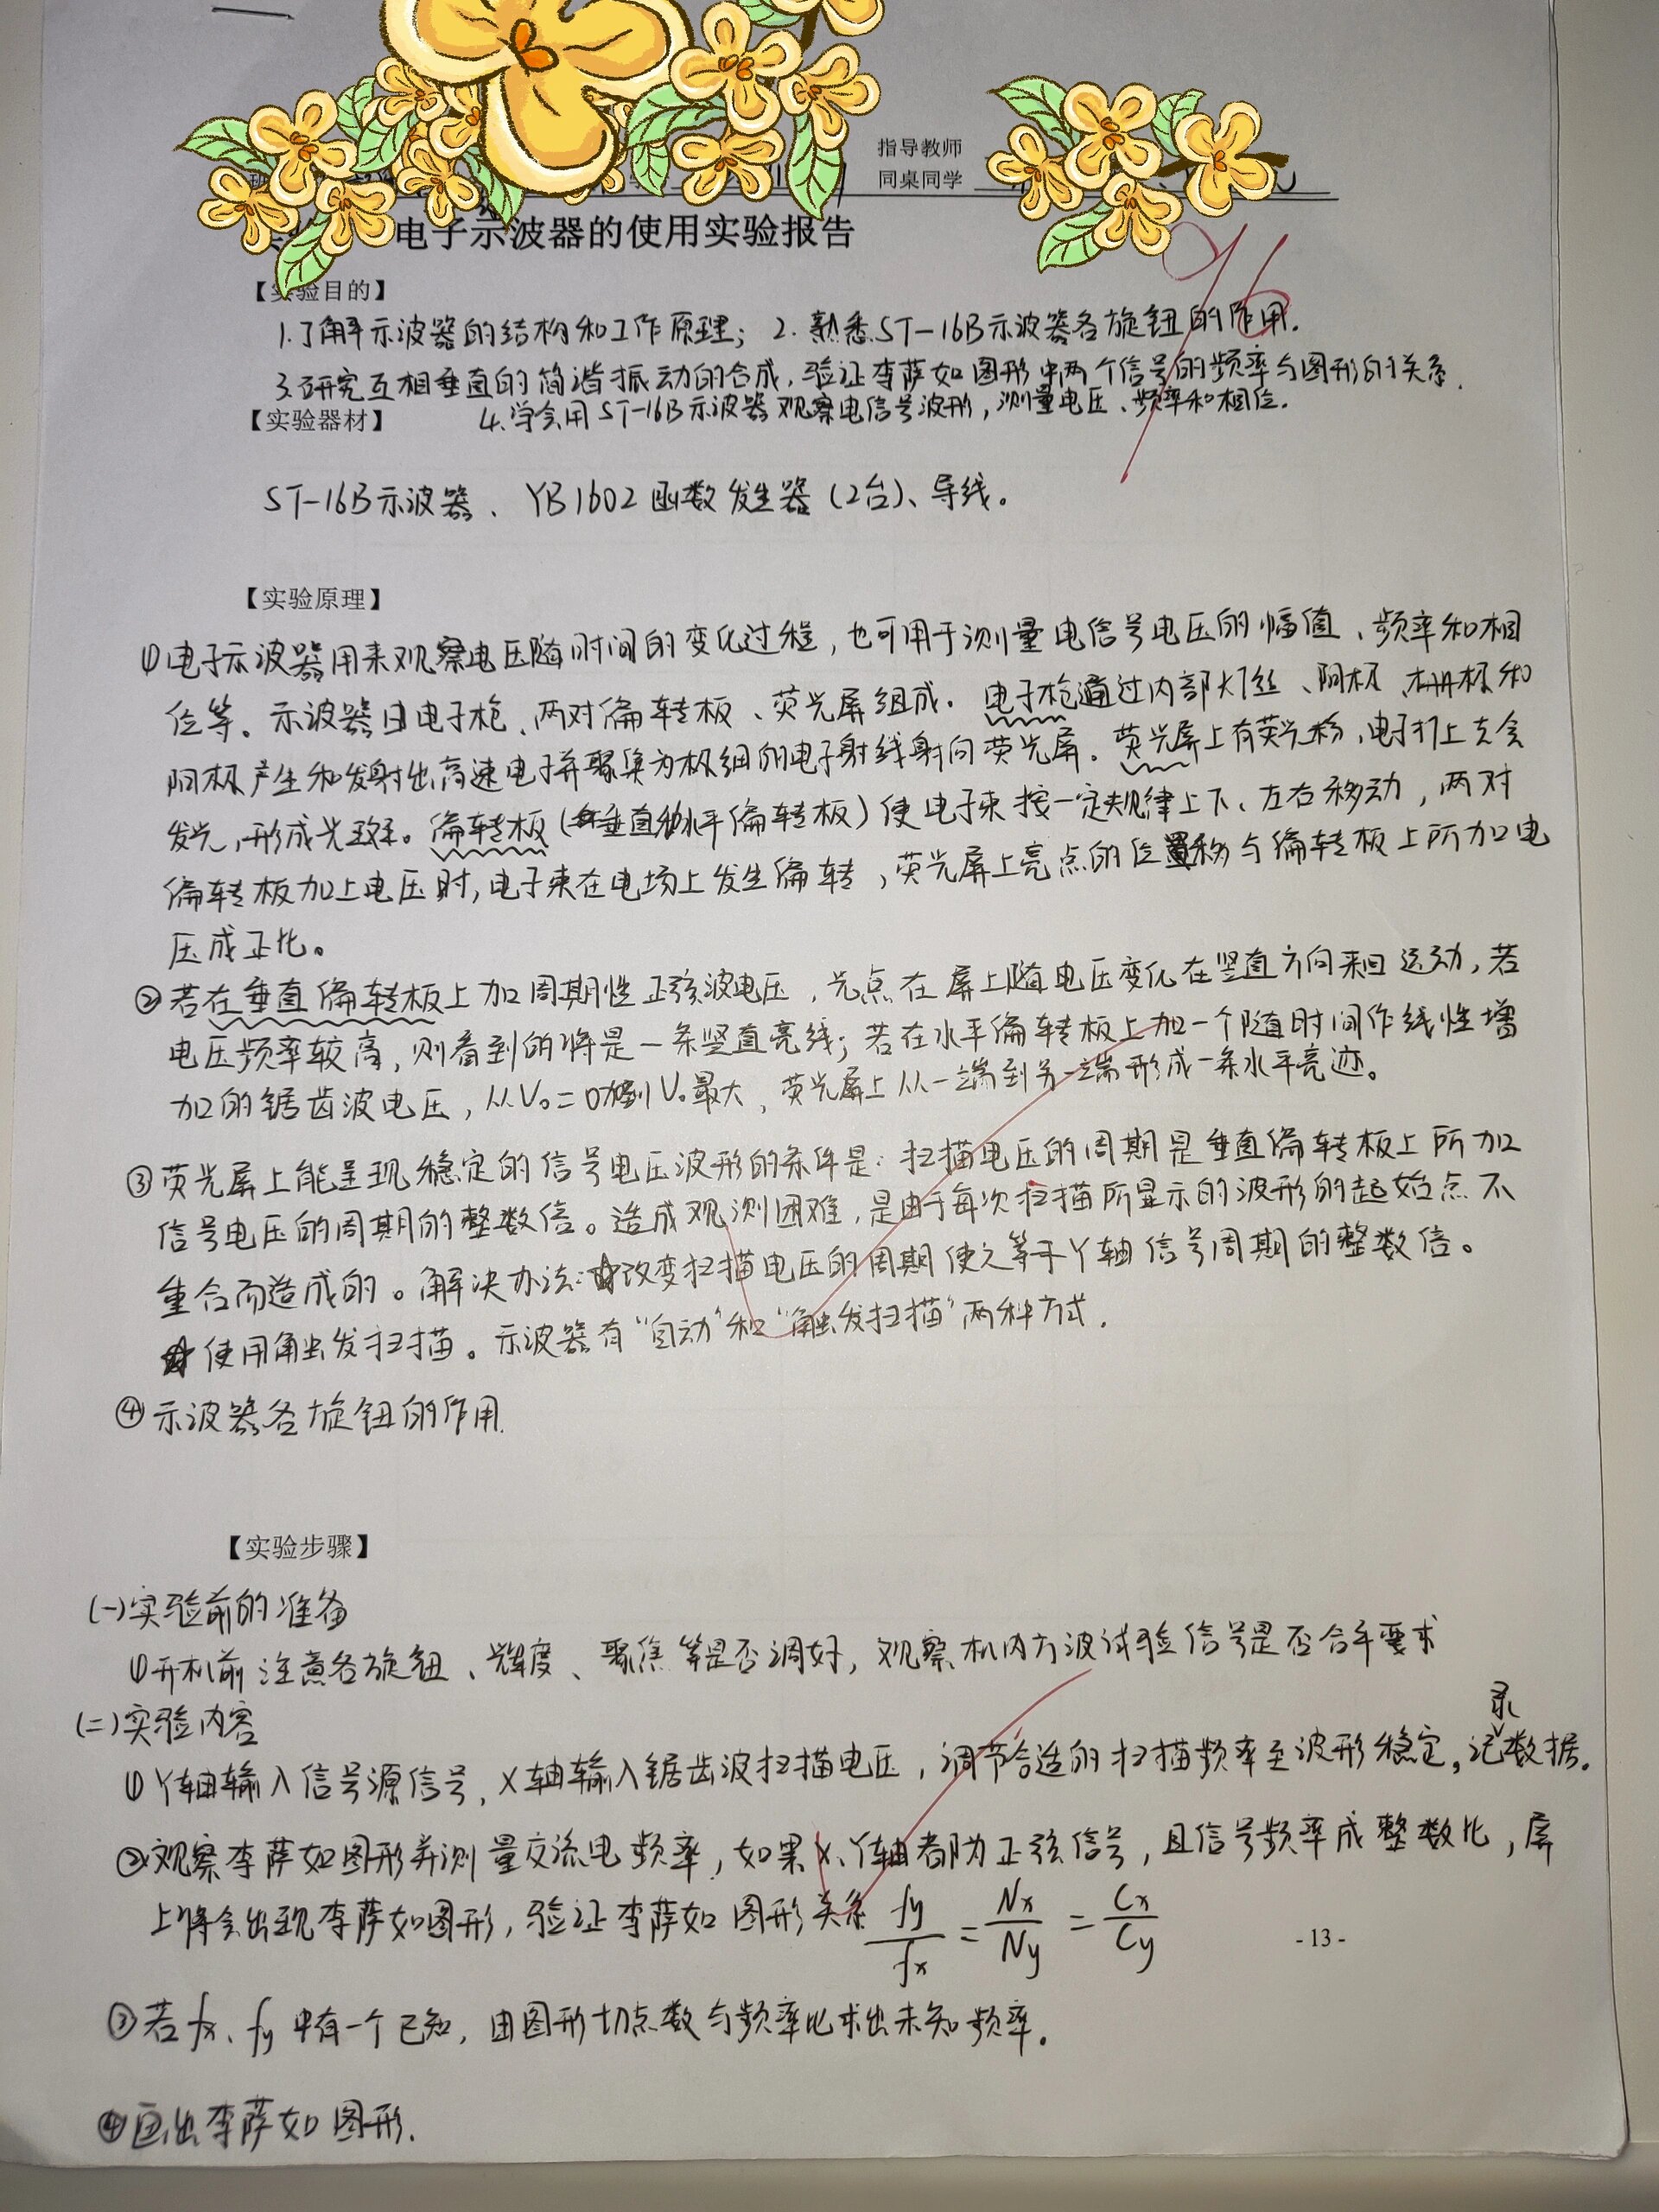 指导教师
同桌同学
电子示波器的使用实验报告
96
【实验目的】
1.了解示波器的结构和工作原理; 2.熟悉ST-16B示波器各旋钮的作用.
3.研究互相垂直的简谐振动的合成,验证李萨如图形中两个信号的频率与图形的关系.
【实验器材】 4.学会用ST-16B示波器观察电信号波形,测量电压、频率和相位.
ST-16B示波器、YB1602函数发生器(2台)、导线。
【实验原理】
①电子示波器用来观察电压随时间的变化过程,也可用于测量电信号电压的幅值、频率和相
位等。示波器由电子枪、两对偏转板、荧光屏组成.电子枪通过内部灯丝、阴极、栅极和
阳极产生和发射出高速电子并聚集为极细的电子射线射向荧光屏.荧光屏上有荧光粉,电子打上去会
发光,形成光斑。偏转板(垂直和水平偏转板)使电子束按一定规律上下、左右移动,两对
偏转板加上电压时,电子束在电场上发生偏转,荧光屏上亮点的位移与偏转板上所加电
压成正比。
②若在垂直偏转板上加周期性正弦波电压,光点在屏上随电压变化在竖直方向来回运动,若
电压频率较高,则看到的将是一条竖直亮线;若在水平偏转板上加一个随时间作线性增
加的锯齿波电压,从V₀=0加到V₀最大,荧光屏上从一端到另一端形成一条水平亮迹。
③荧光屏上能呈现稳定的信号电压波形的条件是:扫描电压的周期是垂直偏转板上所加
信号电压的周期的整数倍。造成观测困难,是由于每次扫描所显示的波形的起始点不
重合而造成的。解决办法:☆改变扫描电压的周期使之等于Y轴信号周期的整数倍。
☆使用触发扫描。示波器有“自动”和“触发扫描”两种方式.
④示波器各旋钮的作用.
【实验步骤】
(一)实验前的准备
①开机前注意各旋钮、辉度、聚焦等是否调好,观察机内方波试验信号是否合乎要求
(二)实验内容
①Y轴输入信号源信号,X轴输入锯齿波扫描电压,调节合适的扫描频率至波形稳定。记录数据.
②观察李萨如图形并测量交流电频率,如果X、Y轴都为正弦信号,且信号频率成整数比,屏
上将会出现李萨如图形,验证李萨如图形关系 fy/fx = Nx/Ny = Cx/Cy
- 13 -
③若fx、fy中有一个已知,由图形切点数与频率比求出未知频率.
④画出李萨如图形.